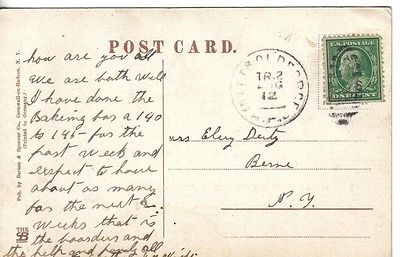 POST CARD.
how are you all
We are both Well
I have done the
Bakeing has a 140
to 145 for the
past week and
expect to have
about as many
for the next 2
Weeks that is
the boarders and
the help and
TR.2
AUG
12
U.S. POSTAGE
ONE CENT
mrs Elery Deitz
Berne
N. Y.
Pub. by Barnes & Spencer Co., Cornwall-on-Hudson, N. Y.
(Printed in Germany)
THE